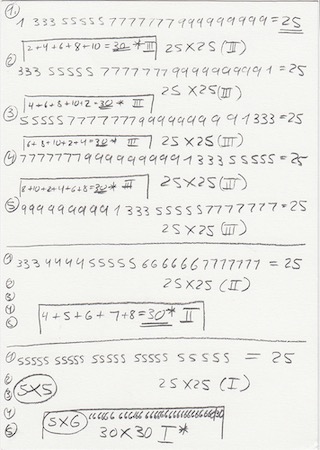 ①
1 333 55555 7777777 999999999 = 25
2+4+6+8+10=30 * III 25X25 (III)
②
333 55555 7777777 999999999 1 = 25
25 X25 (III)
4+6+8+10+2=30 * III
③
55555 7777777 999999999 1 333 = 25
6+8+10+2+4=30 * III 25X25 (III)
④ 7777777 999999999 1 333 55555 = 25
8+10+2+4+6=30 * III 25X25 (III)
⑤ 999999999 1 333 55555 7777777 = 25
25 X25 (III)
① 333 4444 55555 666666 7777777 = 25
② 25X25 (II)
③
④ 4+5+6+7+8=30* II
⑤
① 55555 55555 55555 55555 55555 = 25
②
③ 5X5 25X25 (I)
④
⑤ 5X6
30X30 I*